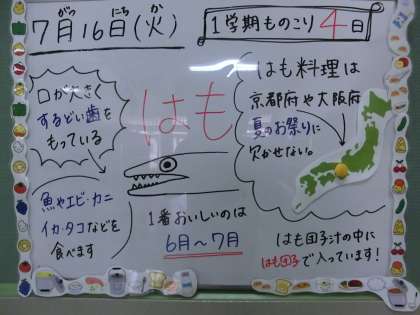 がつ にち か
7月16日(火)
1学期ものこり4日
口が大きく
するどい歯を
もっている
はも
はも料理は
京都府や大阪府
夏のお祭りに
欠かせない。
魚やエビ・カニ
イカ・タコなどを
食べます
1番おいしいのは
6月〜7月
はも団子汁の中に
はも団子で入っています!